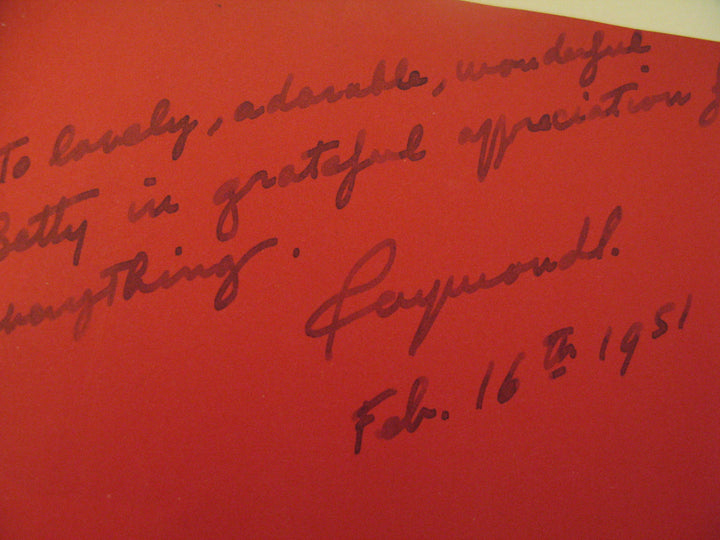 To lovely, adorable, wonderful
Betty in grateful appreciation f
everything.
Raymond.
Feb. 16th 1951